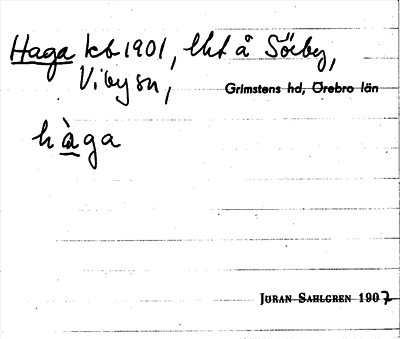 Haga kb 1901, lht å Sörby,
Viby sn,
Grimstens hd, Örebro län
hàga
JÖRAN SAHLGREN 1907